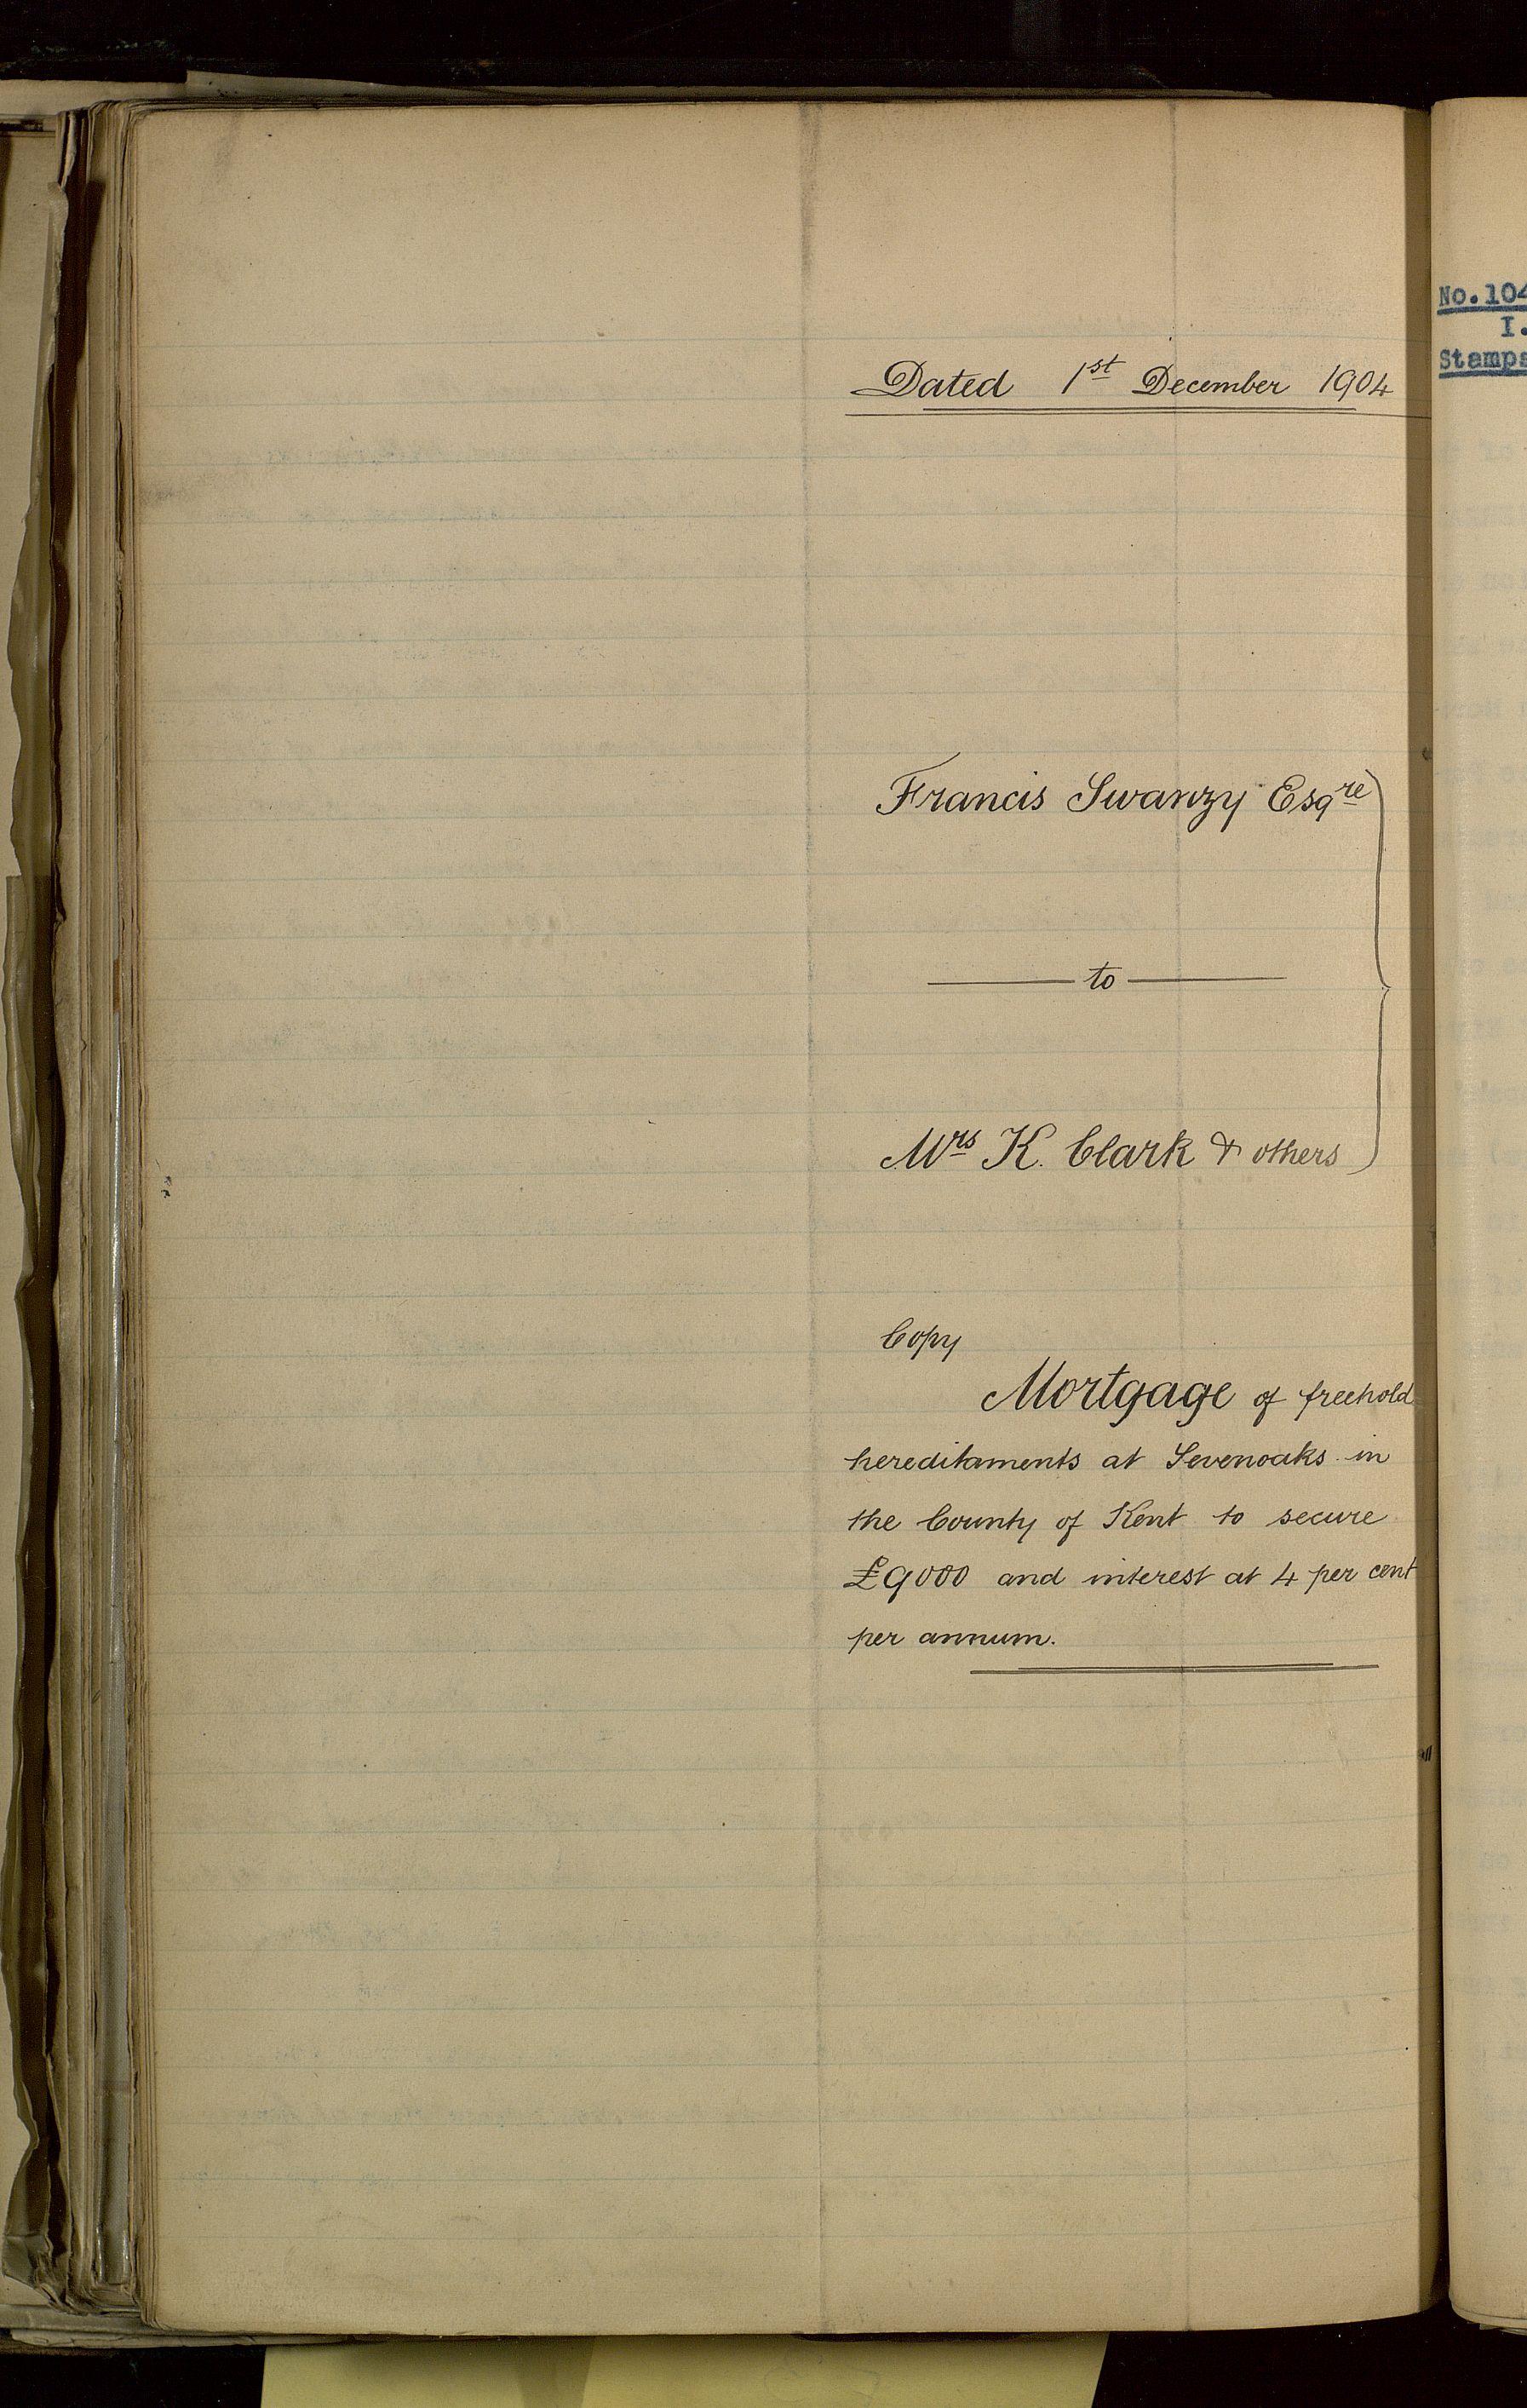 Dated 1st December 1904
Francis Swanzy Esqre
to
Mrs K. Clark & others
Copy
Mortgage of freehold
hereditaments at Sevenoaks in
the County of Kent to secure
£9000 and interest at 4 per cent
per annum.
No.104
I.
Stamps